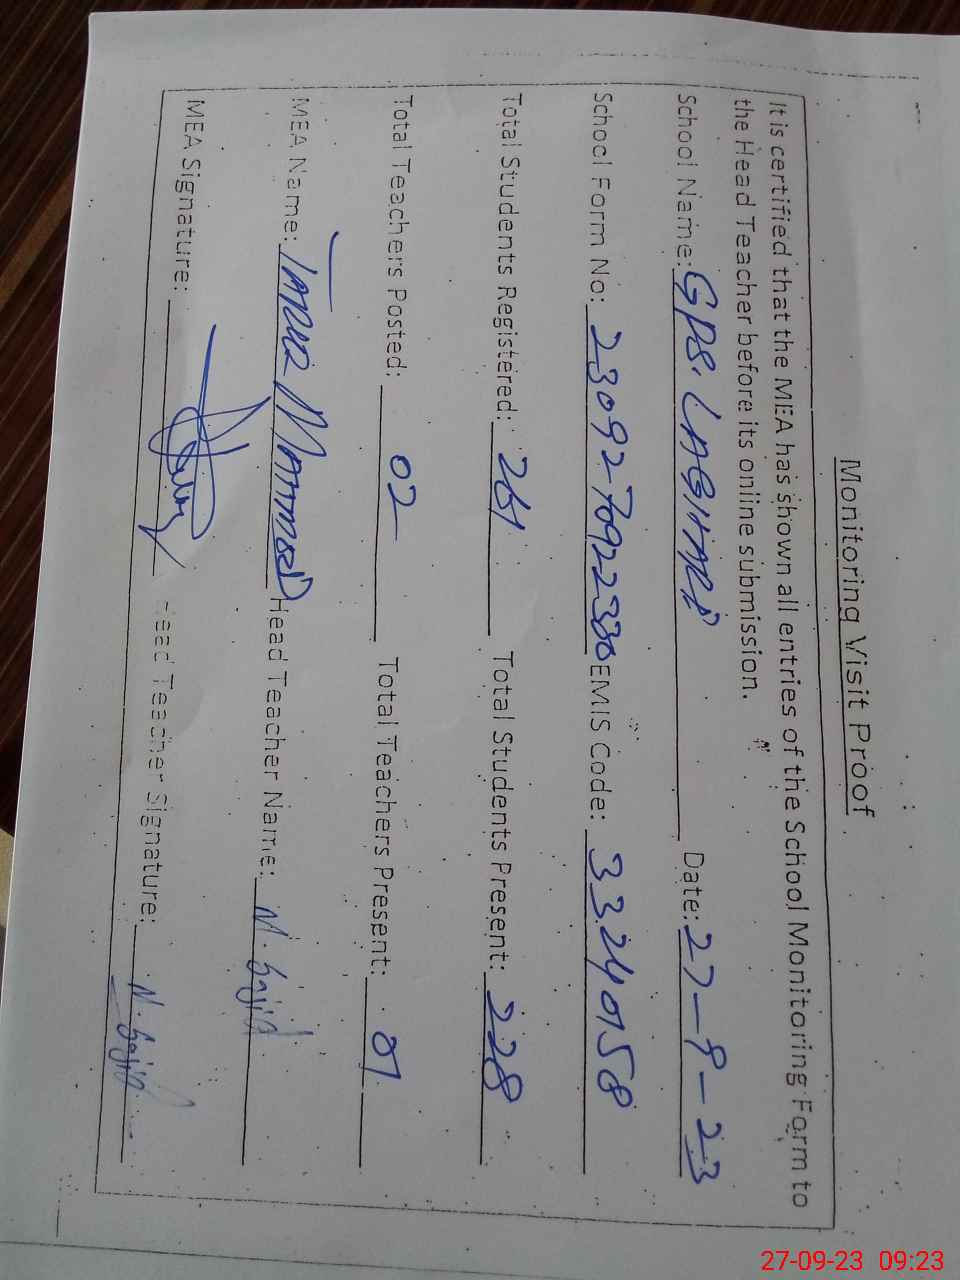 Monitoring Visit Proof
It is certified that the MEA has shown all entries of the School Monitoring Form to
the Head Teacher before its online submission.
School Name: GPS. LAGHARI Date: 27-9-23
School Form No: 2309270922330 EMIS Code: 33240158
Total Students Registered: 261 Total Students Present: 228
Total Teachers Posted: 02 Total Teachers Present: 01
MEA Name: Head Teacher Name: M. Sajid
MEA Signature: Head Teacher Signature: M. Sajid
27-09-23 09:23